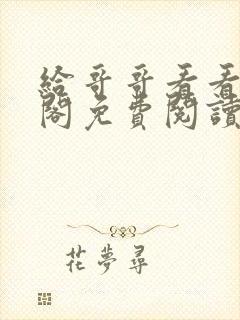 給哥哥看看
閣免費閱讀
花夢尋